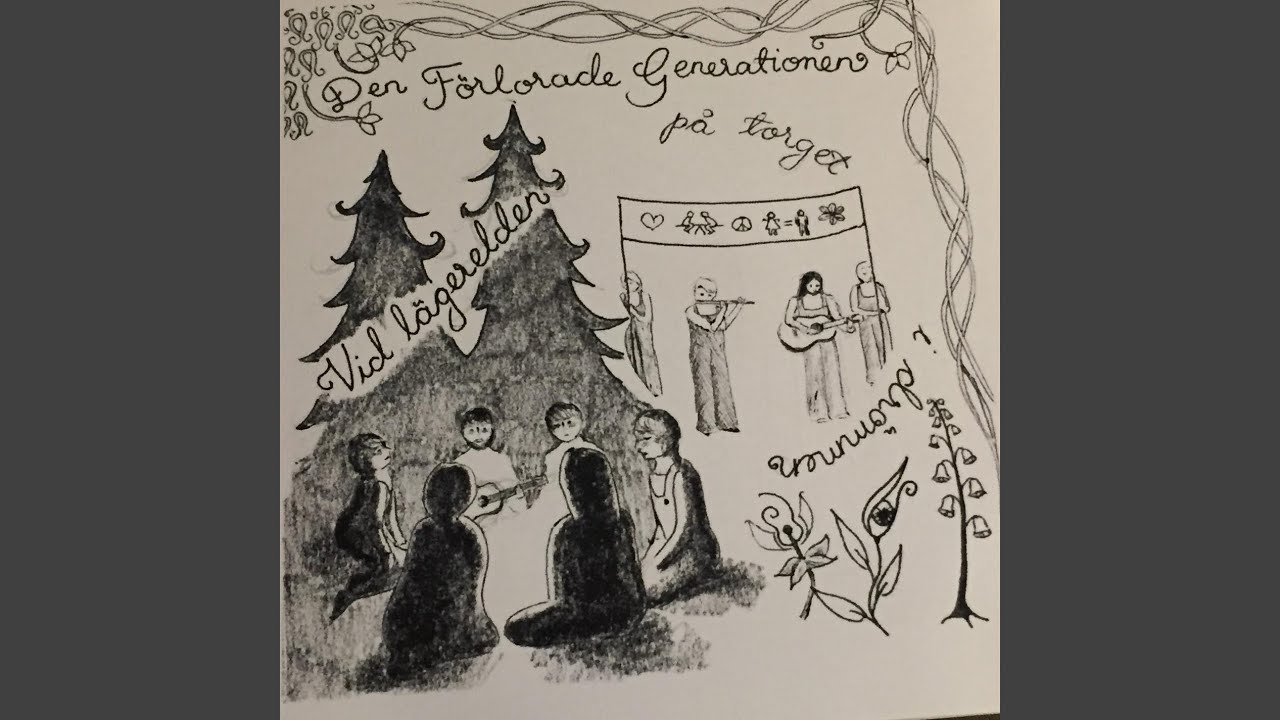 Den Förlorade Generationen
på torget
Vid lägerelden
i drömmen